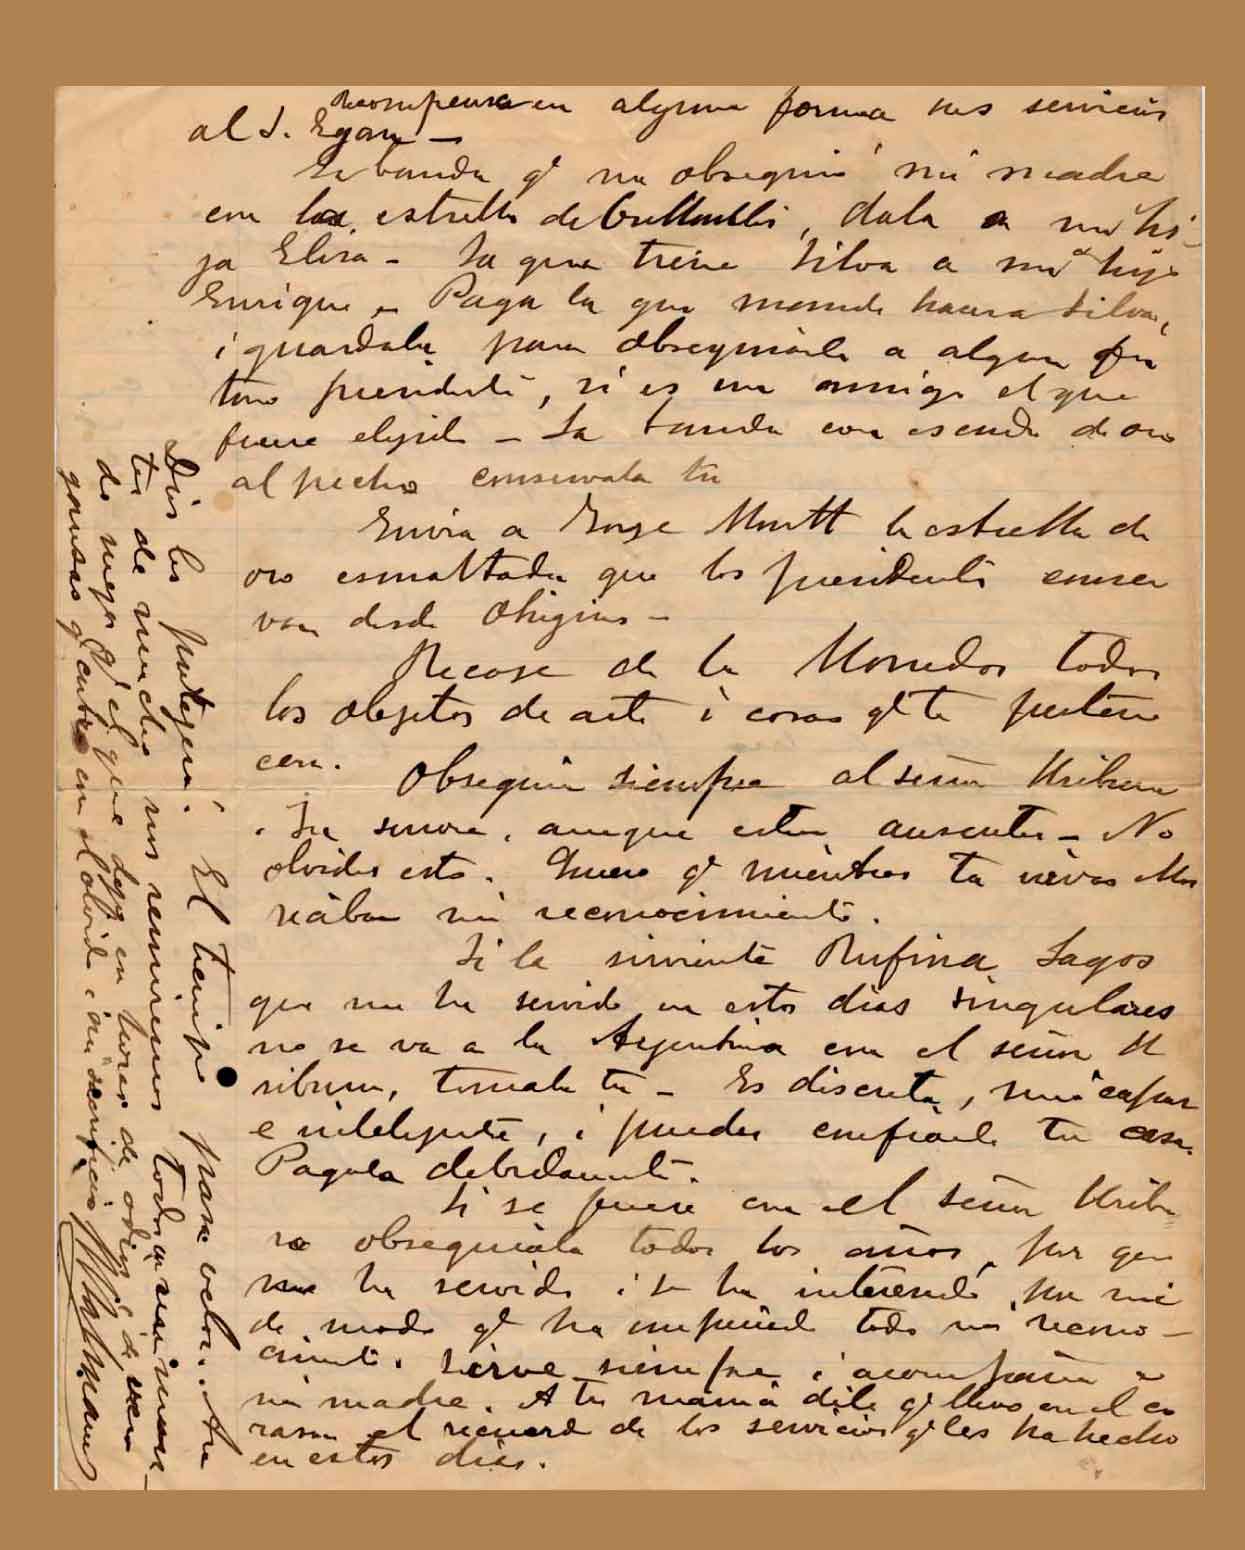 Recompensa en alguna forma sus servicios
al S. Egan —
La banda qe me obsequió mi madre
con la estrella de brillantes, dala a mi hi-
ja Elisa - La que tiene Silva a mi hijo
Enrique - Paga la que mandé hacer a Silva,
i guardala para obsequiarla a algun fu
turo presidente, si es un amigo el que
fuere elejido - La banda con escudo de oro
al pecho conservala tu
Envia a Jorje Montt la estrella de
oro esmaltada que los presidentes conser
van desde Ohigins -
Recoje de la Moneda todos
los objetos de arte i cosas qe te pertene
cen.
Obsequia siempre al señor Uriburu
i su señora, aunque esten ausentes - No
olvides esto. Quiero qe mientras tu vivas
reciban mi reconocimiento.
Si la sirviente Rufina Lagos
que me ha servido en estos dias singulares
no se va a la Arjentina con el señor U
riburu, tomala tu - Es discreta, mui capaz
e intelijente, i puedes confiarle tu casa.
Pagala debidamente.
Si se fuere con el señor Uribu
ru obsequiala todos los años, por que
me ha servido i se ha interesado por mi
de modo qe ha empeñado todo mi recono-
cimiento. Sirve siempre i acompaña a
mi madre. A tu mamá dile qe llevo en el co
razon el recuerdo de los servicios qe les ha hecho
en estos dias.
Dios los protejerá. El tiempo para velar.
tes de mucho nos reuniremos todos en
do mejor qe el que dejo en horas de odios i de
ganzas qe cubro con el olvido i mi sacrificio